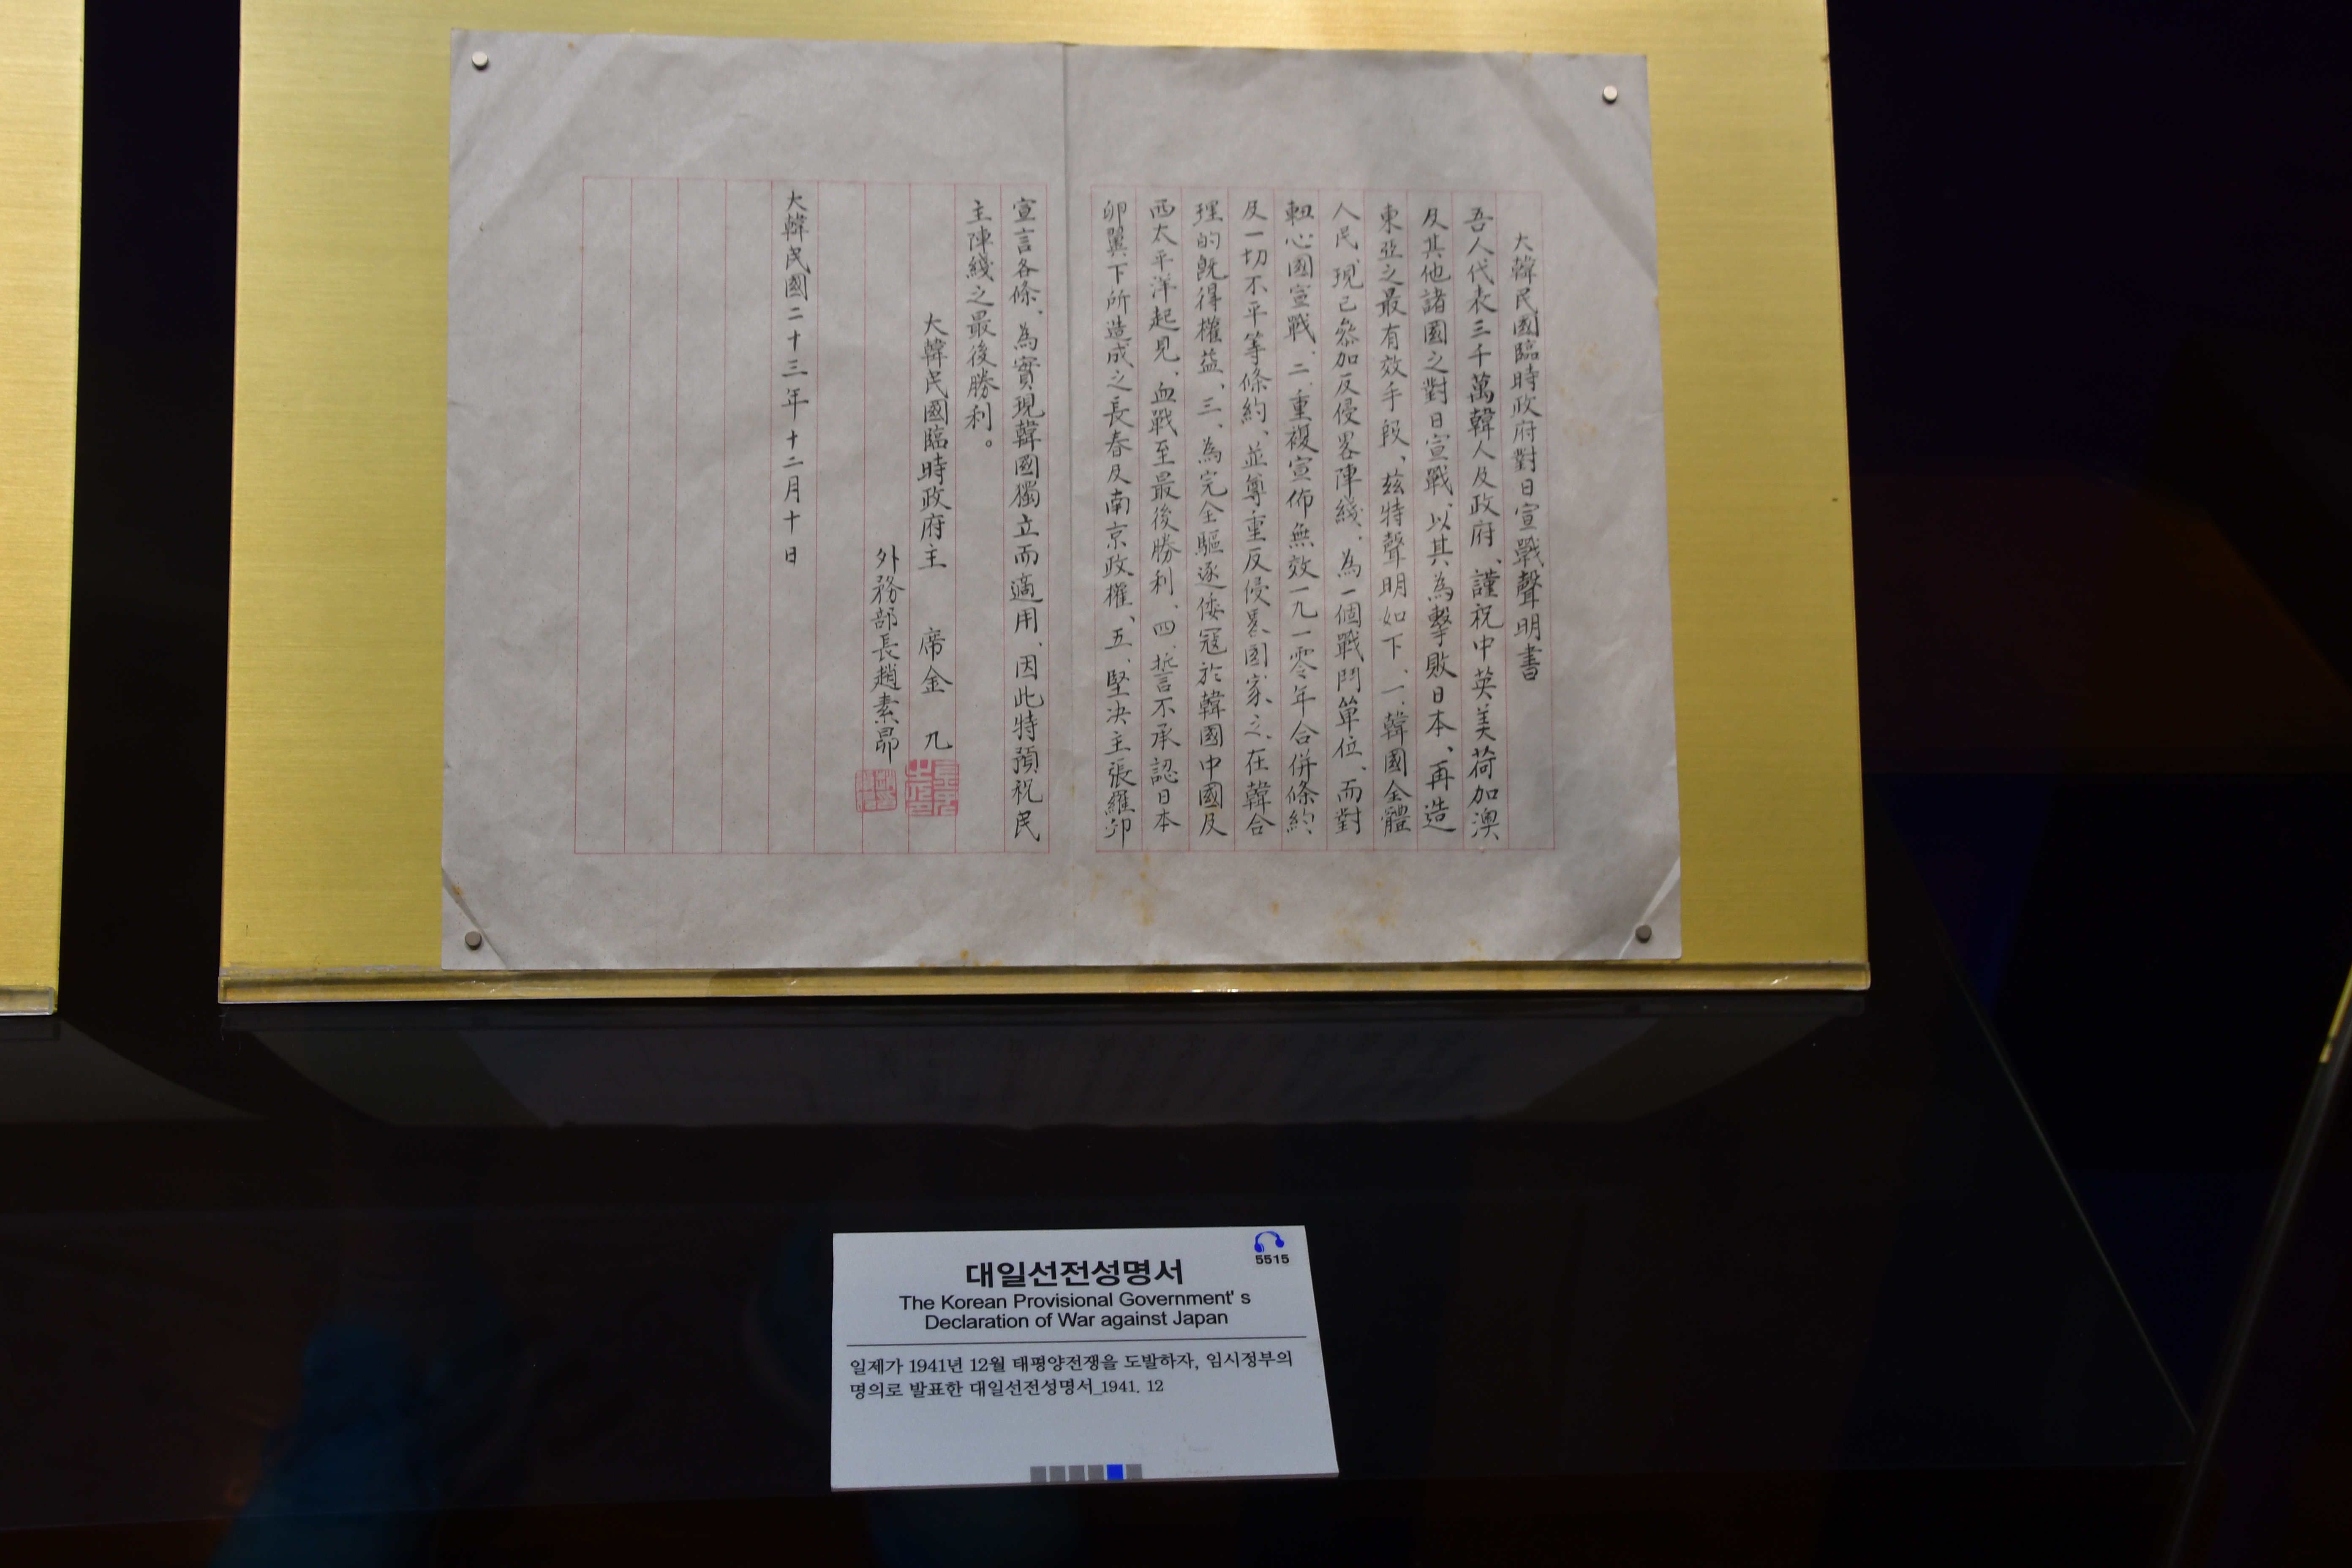 大韓民國臨時政府對日宣戰聲明書
吾人代表三千萬韓人及政府、謹祝中英美荷加澳
及其他諸國之對日宣戰、以其為擊敗日本、再造
東亞之最有效手段、茲特聲明如下、一、韓國全體
人民、現已參加反侵畧陣綫、為一個戰鬥單位、而對
軸心國宣戰、二、重複宣佈無效一九一零年合併條約、
及一切不平等條約、並尊重反侵畧國家之、在韓合
理的旣得權益、三、為完全驅逐倭寇於韓國中國及
西太平洋起見、血戰至最後勝利、四、誓不承認日本
卵翼下所造成之長春及南京政權、五、堅决主張羅邱
宣言各條、為實現韓國獨立而適用、因此特預祝民
主陣綫之最後勝利。
大韓民國臨時政府主 席金 九
外務部長趙素昂
大韓民國二十三年十二月十日
5515
대일선전성명서
The Korean Provisional Government's
Declaration of War against Japan
일제가 1941년 12월 태평양전쟁을 도발하자, 임시정부의
명의로 발표한 대일선전성명서_1941. 12